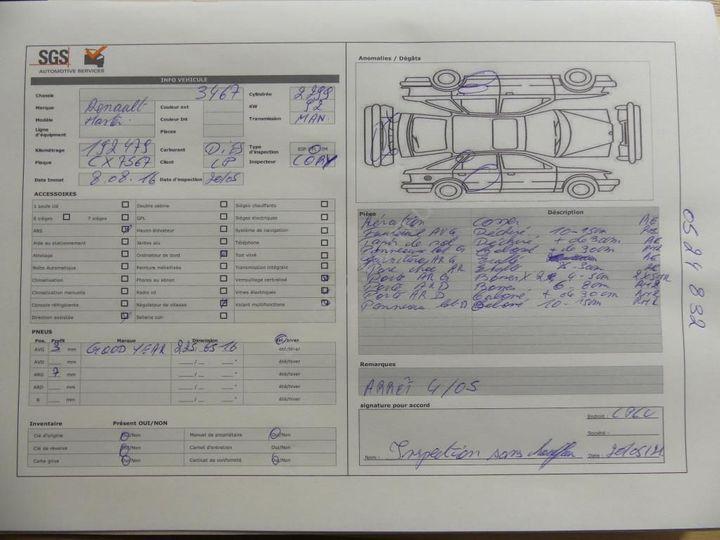 SGS
AUTOMOTIVE SERVICES
INFO VEHICULE
Chassis 3467 Cylindrée 2299
Marque Renault Couleur ext KW 92
Modèle Master Couleur Int Transmission MAN
Ligne d'équipement Places
Kilométrage 192479 Carburant DIES Type d'inspection
Plaque CX7567 Client LP Inspecteur COAY
Date Immat 8.08.16 Date d'inspection 20/05
ACCESSOIRES
1 seule clé Double cabine Sièges chauffants
6 sièges 7 sièges GPL Sièges électriques
ABS Hayon élévateur Système de navigation
Aide au stationnement Jantes alu Téléphone
Attelage Ordinateur de bord Toit vitré
Boîte Automatique Peinture métallisée Transmission intégrale
Climatisation Phares au xénon Verrouillage centralisé
Climatisation manuelle Radio cd Vitres électriques
Console réfrigérante Régulateur de vitesse Volant multifonctions
Direction assistée Sellerie cuir
PNEUS
Pos. Profil Marque Dimension Eté/hiver
AVG 3 mm GOOD YEAR 225 65 16 été/hiver
AVD mm été/hiver
ARG 7 mm été/hiver
ARD mm été/hiver
R mm été/hiver
Inventaire Présent OUI/NON
Clé d'origine Oui/Non Manuel de propriétaire Oui/Non
Clé de réserve Oui/Non Carnet d'entretien Oui/Non
Carte grise Oui/Non Certificat de conformité Oui/Non
Anomalies / Dégâts
Pièce Déscription
Aération Cassé AE
AVG Déchiré 10-15cm AE
Tapis de sol Déchiré + de 30cm AE
+ de 30cm
AR
Porte AR G Bosses X 2
Porte AR D Bosse 6-8cm
Porte AR D + de 30cm
Panneau lat D 10-15cm
Remarques
ARRÊT 4/05
signature pour accord
Endroit :
Société :
Nom : Inspection sans Date : 20/05/21
05 24 832